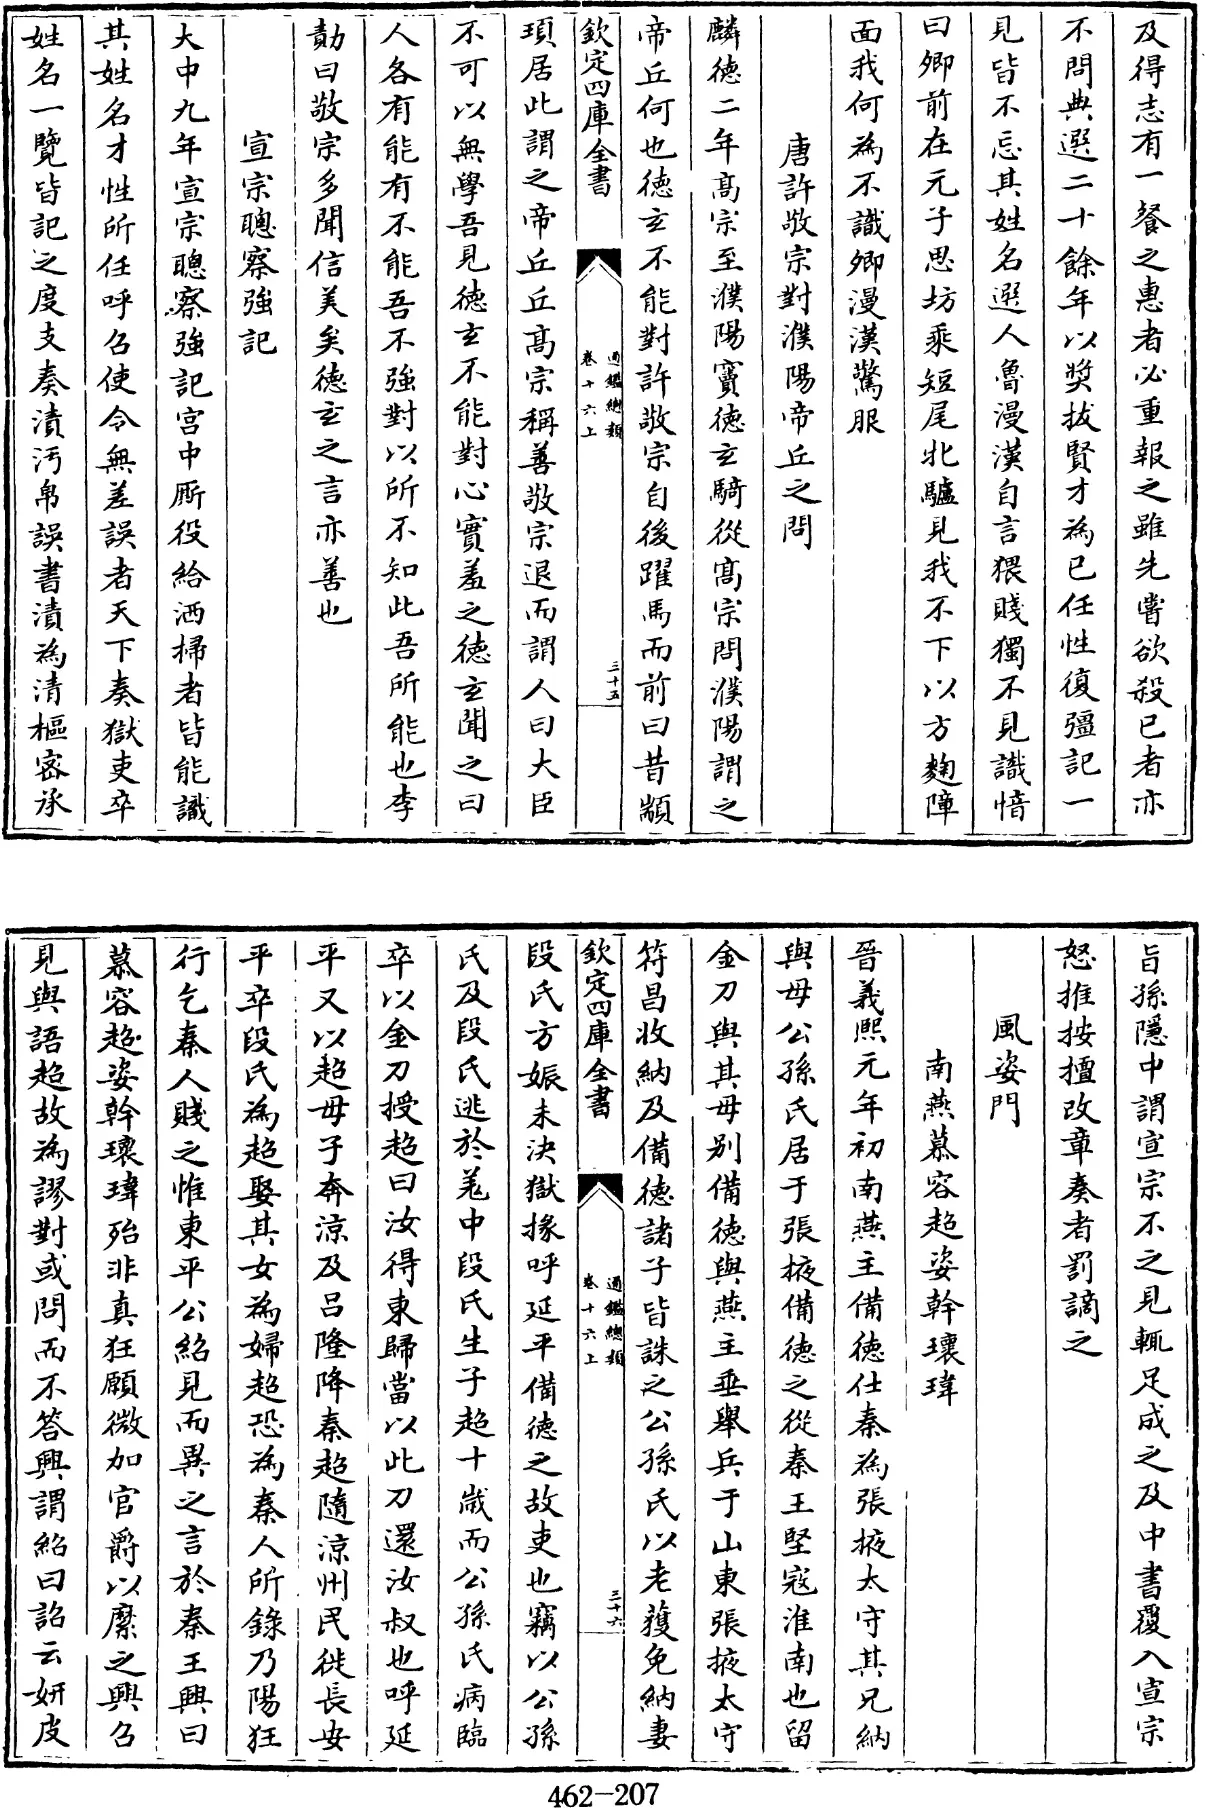 及得志有一餐之惠者必重報之雖先嘗欲殺已者亦
不問典選二十餘年以奬拔賢才為已任性復彊記一
見皆不忘其姓名選人魯漫漢自言猥賤獨不見識愔
曰卿前在元子思坊乘短尾牝驢見我不下以方麴障
面我何為不識卿漫漢驚服
唐許敬宗對濮陽帝丘之問
麟德二年高宗至濮陽竇德玄騎從高宗問濮陽謂之
帝丘何也德玄不能對許敬宗自後躍馬而前曰昔顓
欽定四庫全書
通鑑總類
卷十六上
三十五
頊居此謂之帝丘丘高宗稱善敬宗退而謂人曰大臣
不可以無學吾見德玄不能對心實羞之德玄聞之曰
人各有能有不能吾不強對以所不知此吾所能也李
勣曰敬宗多聞信美矣德玄之言亦善也
宣宗聰察強記
大中九年宣宗聰察強記宮中厮役給洒掃者皆能識
其姓名才性所任呼召使令無差誤者天下奏獄吏卒
姓名一覽皆記之度支奏漬汚帛誤書漬為清樞密承
旨孫隱中謂宣宗不之見輒足成之及中書覆入宣宗
怒推按擅改章奏者罰謫之
風姿門
南燕慕容超姿幹瓌瑋
晉義熙元年初南燕主備德仕秦為張掖太守其兄納
與母公孫氏居于張掖備德之從秦王堅寇淮南也留
金刀與其母别備德與燕主垂舉兵于山東張掖太守
符昌收納及備德諸子皆誅之公孫氏以老獲免納妻
欽定四庫全書
通鑑總類
卷十六上
三十六
段氏方娠未決獄掾呼延平備德之故吏也竊以公孫
氏及段氏逃於羌中段氏生子超十歲而公孫氏病臨
卒以金刀授超曰汝得東歸當以此刀還汝叔也呼延
平又以超母子奔涼及呂隆降秦超隨涼州民徙長安
平卒段氏為超娶其女為婦超恐為秦人所錄乃陽狂
行乞秦人賤之惟東平公紹見而異之言於秦王興曰
慕容超姿幹瓌瑋殆非真狂願微加官爵以縻之興召
見與語超故為謬對或問而不答興謂紹曰諺云妍皮
462-207